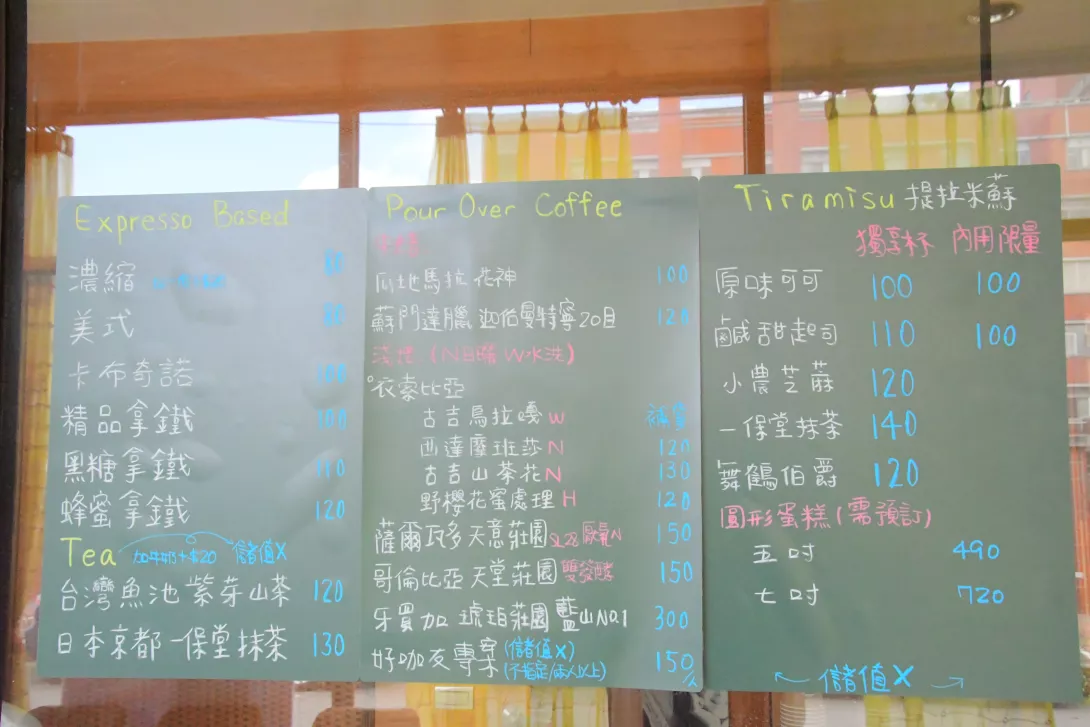 Expresso Based
濃縮 80
美式 80
卡布奇諾 100
精品拿鐵 100
黑糖拿鐵 110
蜂蜜拿鐵 120
Tea 加牛奶+$20 儲值X
台灣魚池紫芽山茶 120
日本京都一保堂抹茶 130
Pour Over Coffee
瓜地馬拉 花神 100
蘇門達臘 迦佑曼特寧20目 120
淺焙(N日曬 W水洗)
衣索比亞
古吉烏拉嘎 W
西達摩班莎 N 120
古吉山茶花 N 130
野櫻花蜜處理 H 120
薩爾瓦多 天意莊園 SL28 厭氧N 150
哥倫比亞 天堂莊園 雙發酵 150
牙買加 琥珀莊園 藍山NO.1 300
好咖友專案 (儲值X) (不指定/兩人以上) 150/人
Tiramisu 提拉米蘇
獨享杯 內用限量
原味可可 100 100
鹹甜起司 110 100
小農芝蔴 120
一保堂抹茶 140
舞鶴伯爵 120
圓形蛋糕(需預訂)
五吋 490
七吋 720
儲值X